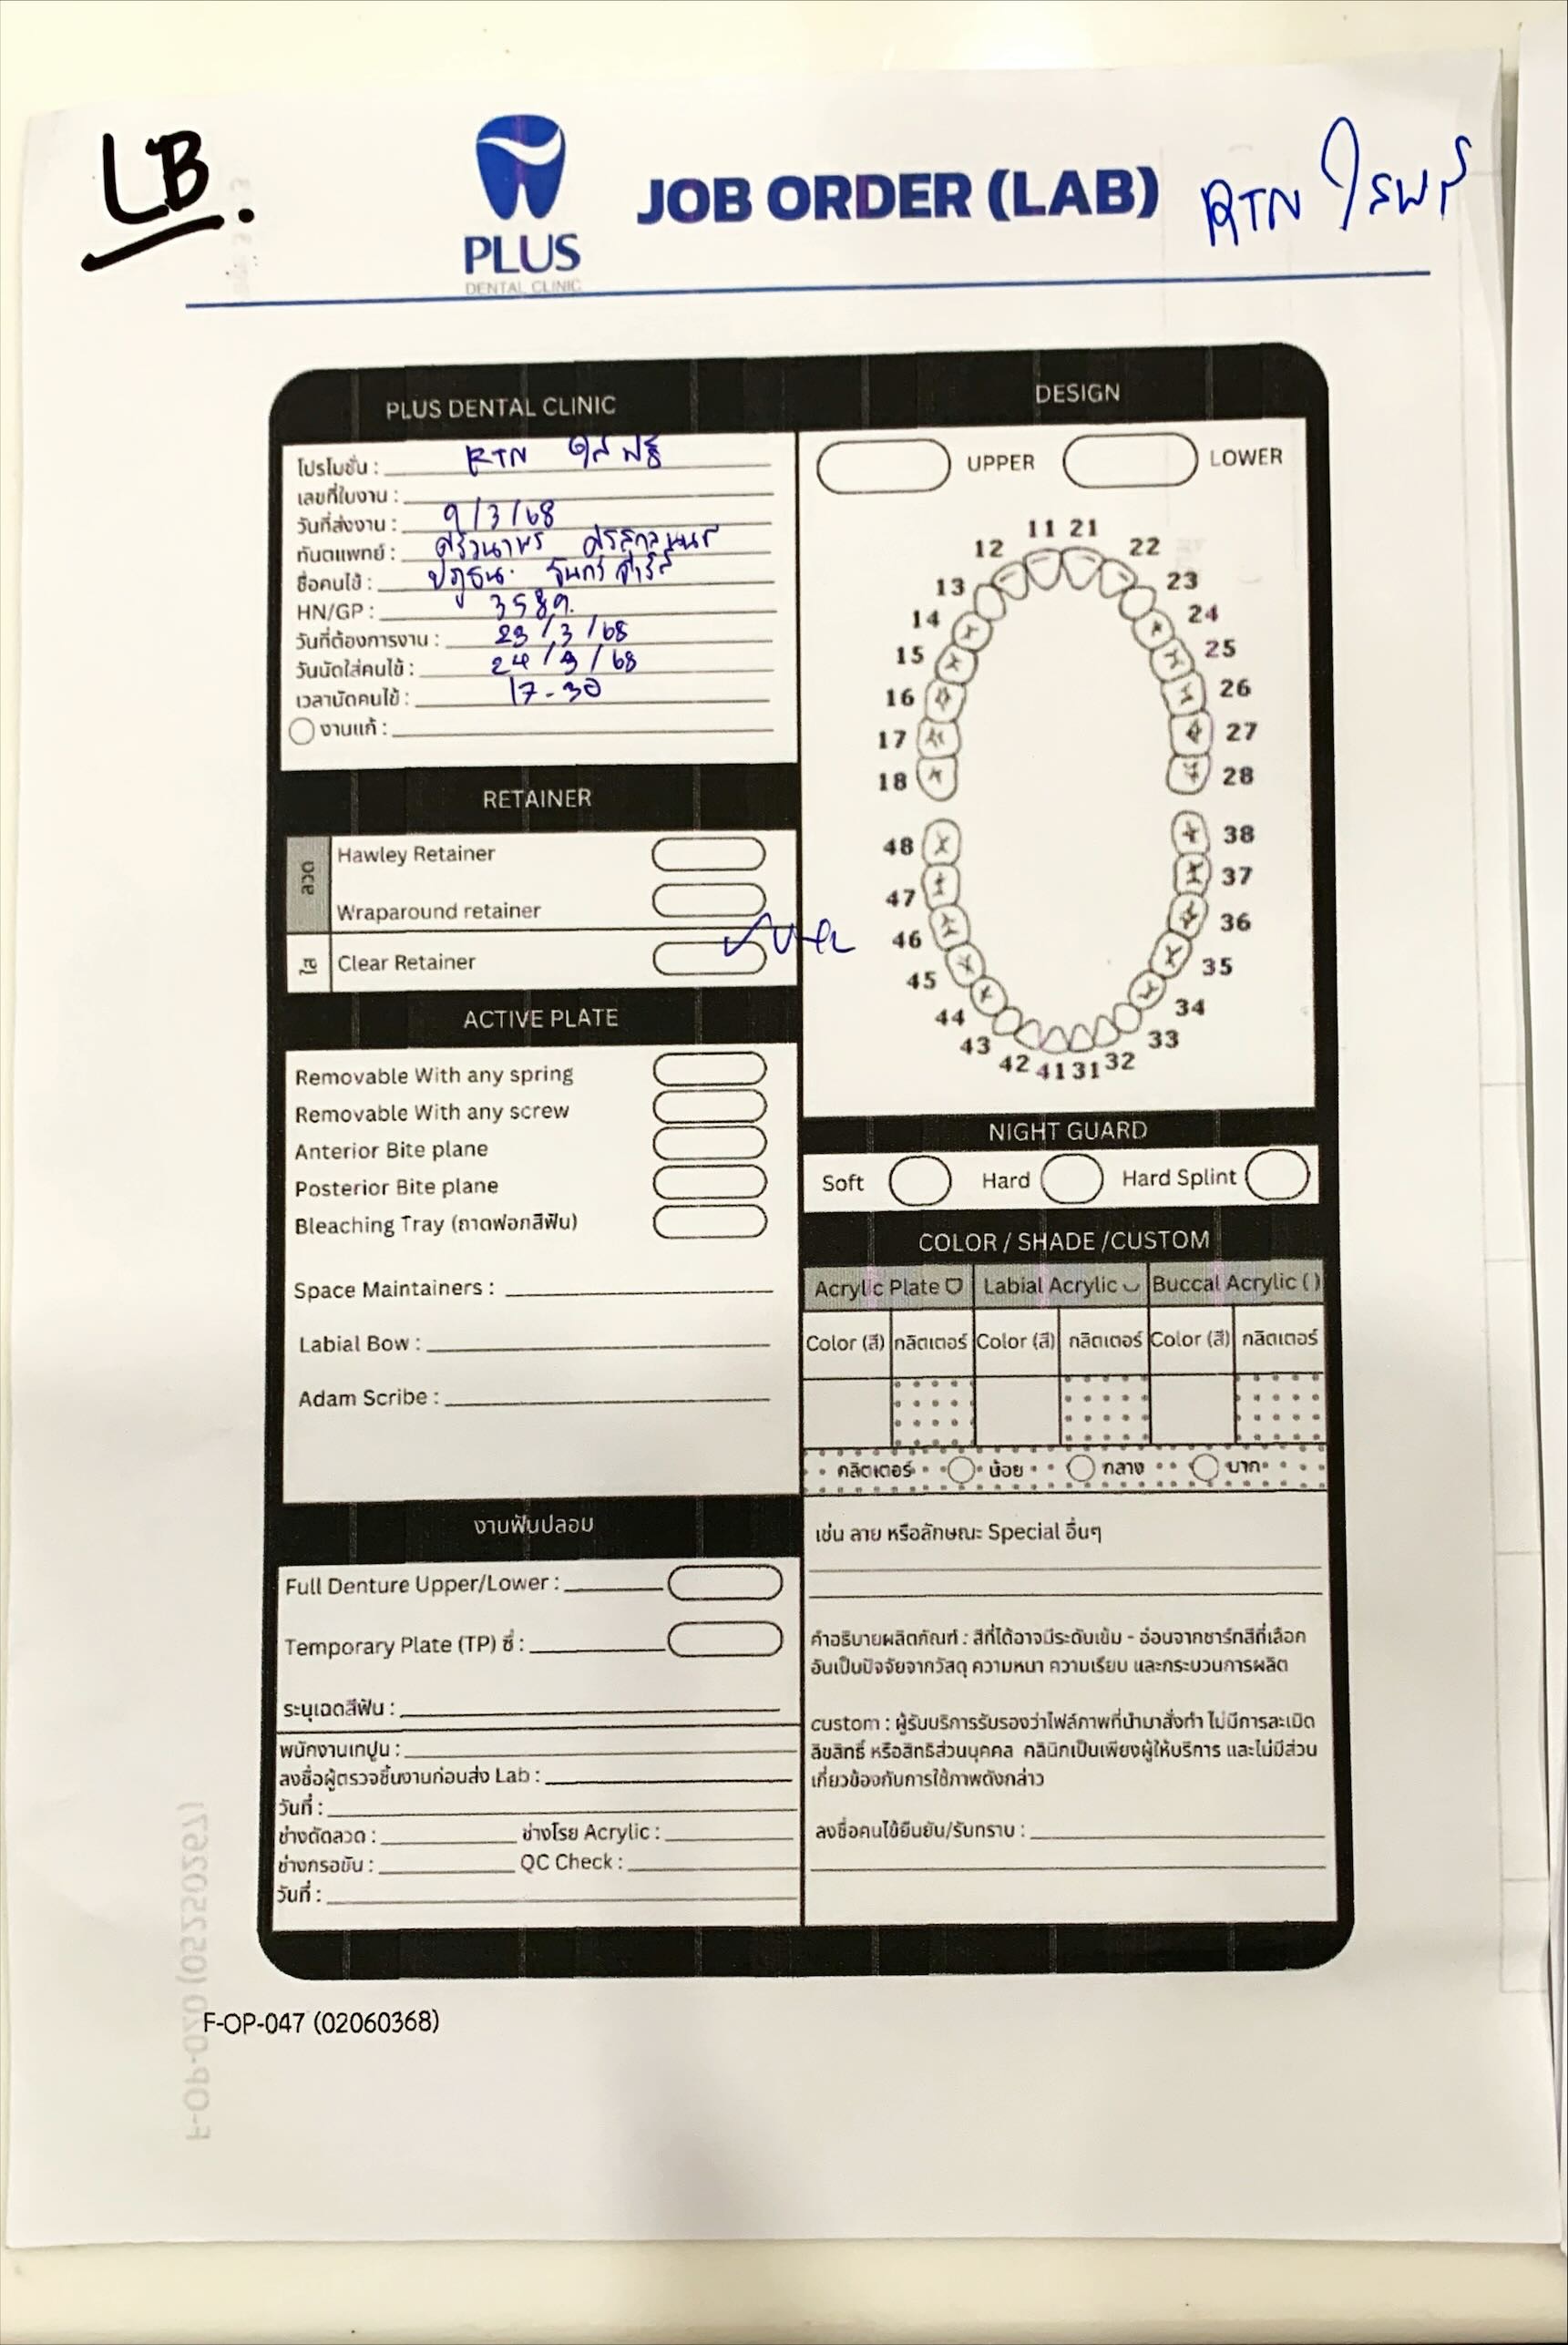 LB.
PLUS
DENTAL CLINIC
JOB ORDER (LAB)
RTN ใสฟรี
PLUS DENTAL CLINIC
โปรโมชั่น : RTN ใสฟรี
เลขที่ใบงาน :
วันที่ส่งงาน : 9/3/68
ทันตแพทย์ :
ชื่อคนไข้ :
HN/GP : 3589.
วันที่ต้องการงาน : 23/3/68
วันนัดใส่คนไข้ : 24/3/68
เวลานัดคนไข้ : 17-30
งานแก้ :
RETAINER
ลวด
Hawley Retainer
Wraparound retainer
ใส
Clear Retainer
ACTIVE PLATE
Removable With any spring
Removable With any screw
Anterior Bite plane
Posterior Bite plane
Bleaching Tray (ถาดฟอกสีฟัน)
Space Maintainers :
Labial Bow :
Adam Scribe :
งานฟันปลอม
Full Denture Upper/Lower :
Temporary Plate (TP) ซี่ :
ระบุเฉดสีฟัน :
พนักงานเทปูน :
ลงชื่อผู้ตรวจชิ้นงานก่อนส่ง Lab :
วันที่ :
ช่างดัดลวด : ช่างโรย Acrylic :
ช่างกรอขัน : QC Check :
วันที่ :
DESIGN
UPPER LOWER
11 21
12 22
13 23
14 24
15 25
16 26
17 27
18 28
48 38
47 37
46 36
45 35
44 34
43 33
42 41 31 32
NIGHT GUARD
Soft Hard Hard Splint
COLOR / SHADE /CUSTOM
Acrylic Plate Labial Acrylic Buccal Acrylic ( )
Color (สี) กลิตเตอร์ Color (สี) กลิตเตอร์ Color (สี) กลิตเตอร์
กลิตเตอร์ น้อย กลาง มาก
เช่น ลาย หรือลักษณะ Special อื่นๆ
คำอธิบายผลิตภัณฑ์ : สีที่ได้อาจมีระดับเข้ม - อ่อนจากชาร์ทสีที่เลือก
อันเป็นปัจจัยจากวัสดุ ความหนา ความเรียบ และกระบวนการผลิต
custom : ผู้รับบริการรับรองว่าไฟล์ภาพที่นำมาสั่งทำ ไม่มีการละเมิด
ลิขสิทธิ์ หรือสิทธิส่วนบุคคล คลินิกเป็นเพียงผู้ให้บริการ และไม่มีส่วน
เกี่ยวข้องกับการใช้ภาพดังกล่าว
ลงชื่อคนไข้ยืนยัน/รับทราบ :
F-OP-047 (02060368)
F-OP-020 (05250267)